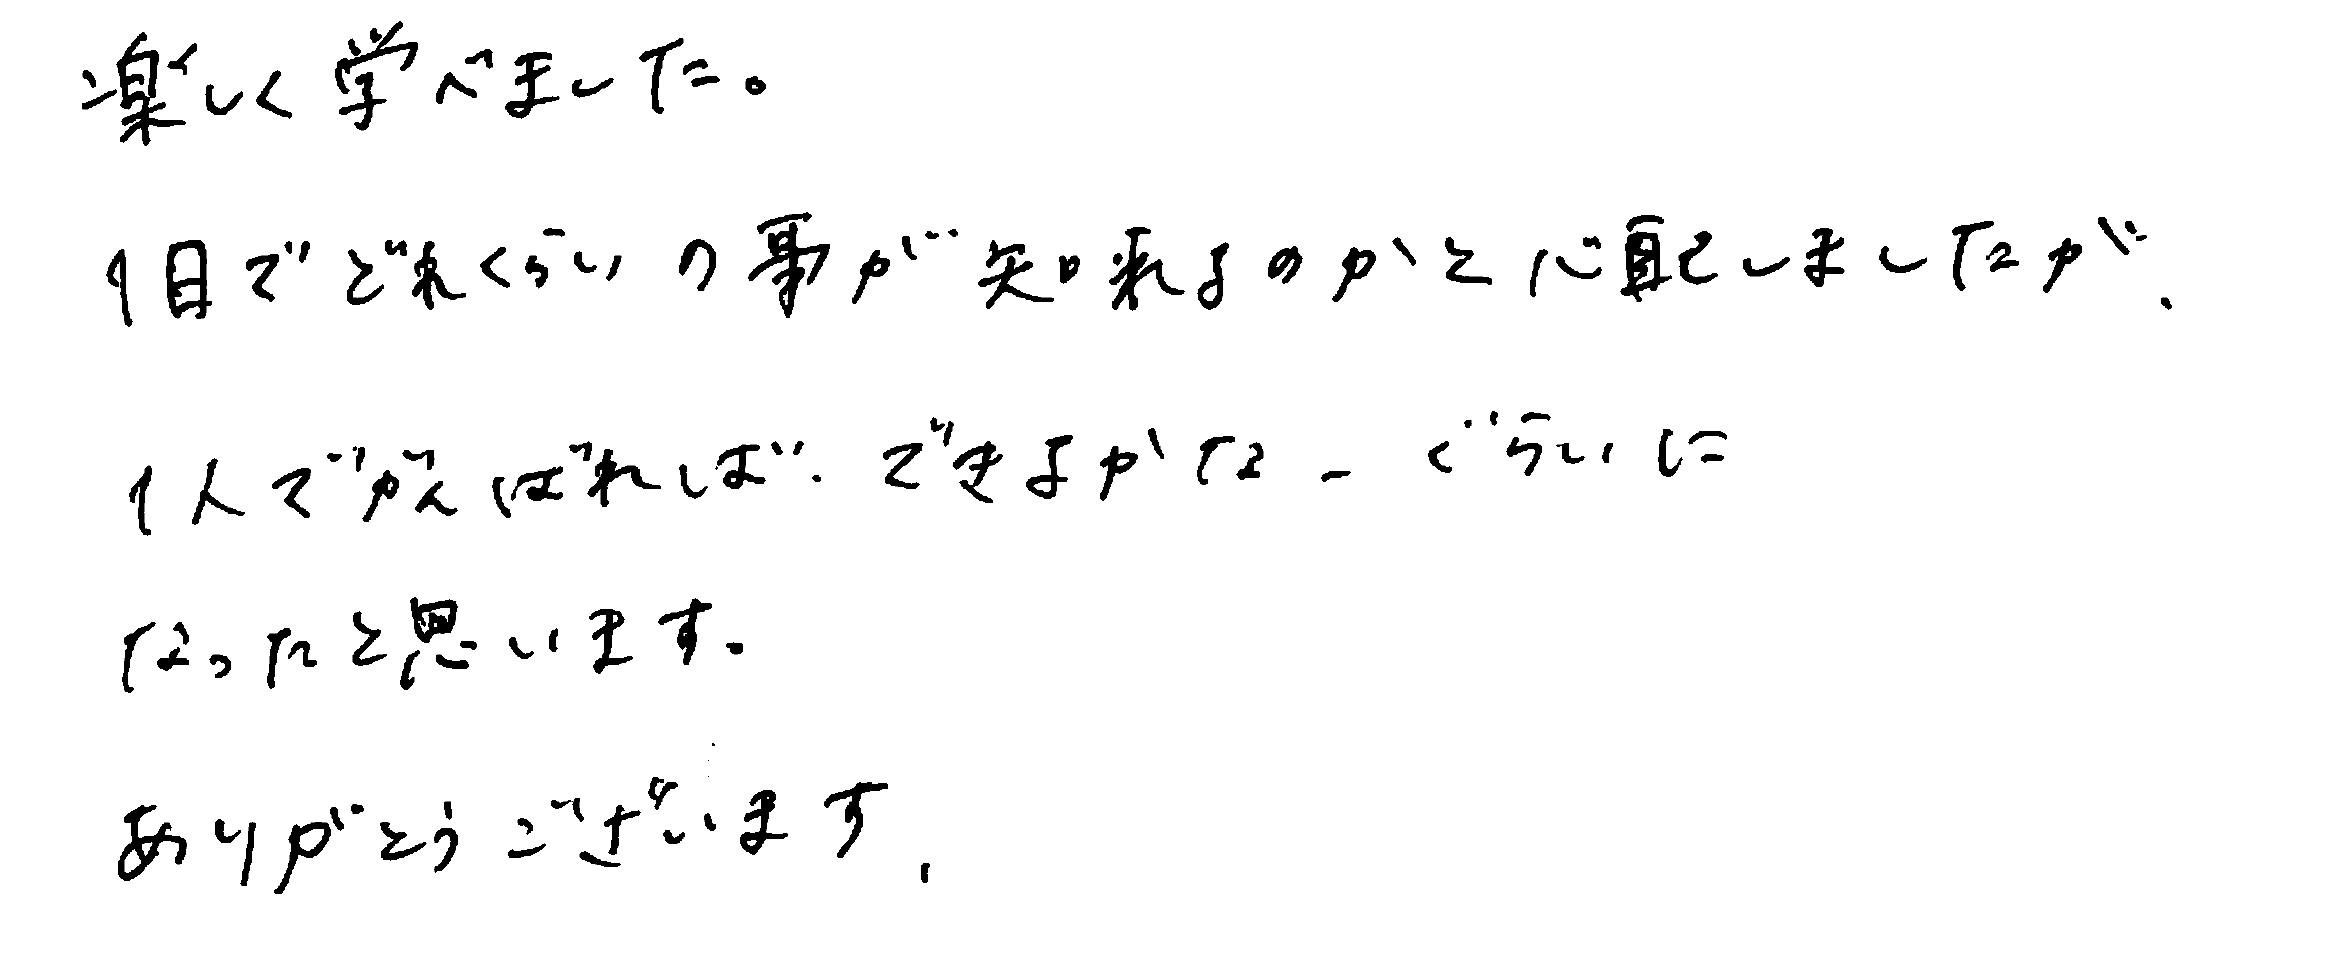 楽しく学べました。
1日でどれくらいの事が知れるのかと心配しましたが、
1人でがんばれば、できるかなーぐらいに
なったと思います。
ありがとうございます、